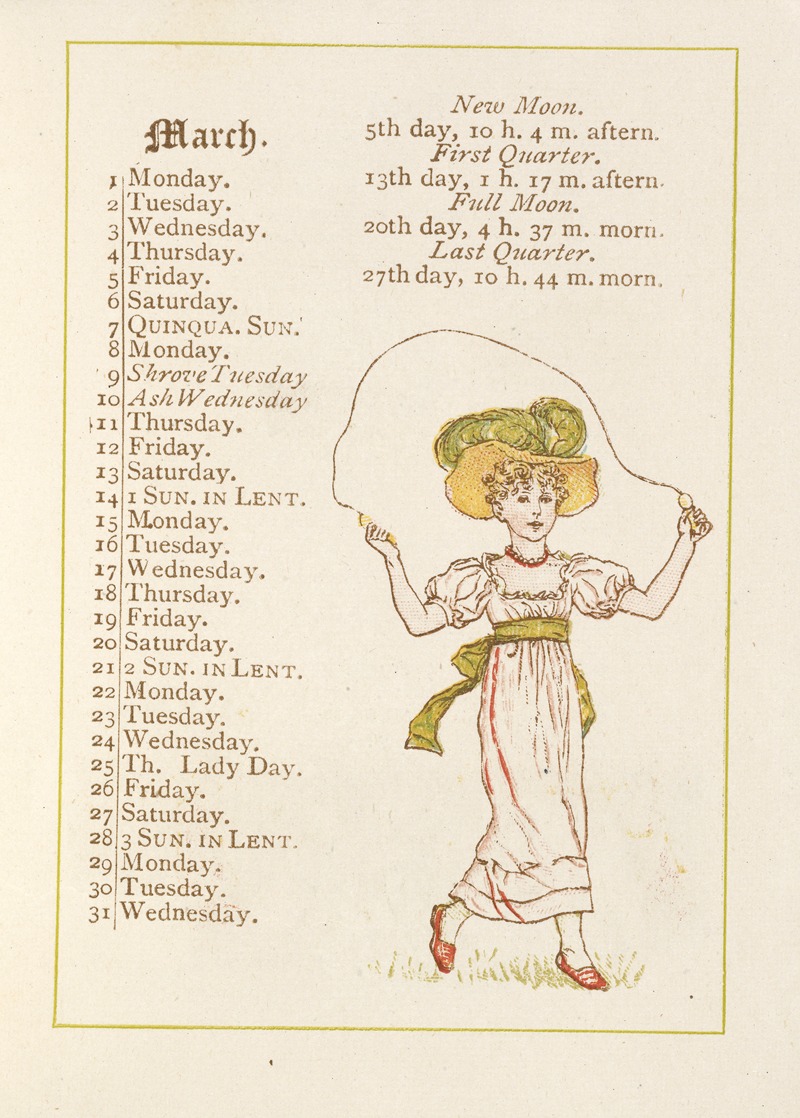 March.
1 Monday.
2 Tuesday.
3 Wednesday.
4 Thursday.
5 Friday.
6 Saturday.
7 QUINQUA. SUN.
8 Monday.
9 Shrove Tuesday
10 Ash Wednesday
11 Thursday.
12 Friday.
13 Saturday.
14 1 SUN. IN LENT.
15 Monday.
16 Tuesday.
17 Wednesday.
18 Thursday.
19 Friday.
20 Saturday.
21 2 SUN. IN LENT.
22 Monday.
23 Tuesday.
24 Wednesday.
25 Th. Lady Day.
26 Friday.
27 Saturday.
28 3 SUN. IN LENT.
29 Monday.
30 Tuesday.
31 Wednesday.
New Moon.
5th day, 10 h. 4 m. aftern.
First Quarter.
13th day, 1 h. 17 m. aftern.
Full Moon.
20th day, 4 h. 37 m. morn.
Last Quarter.
27th day, 10 h. 44 m. morn.